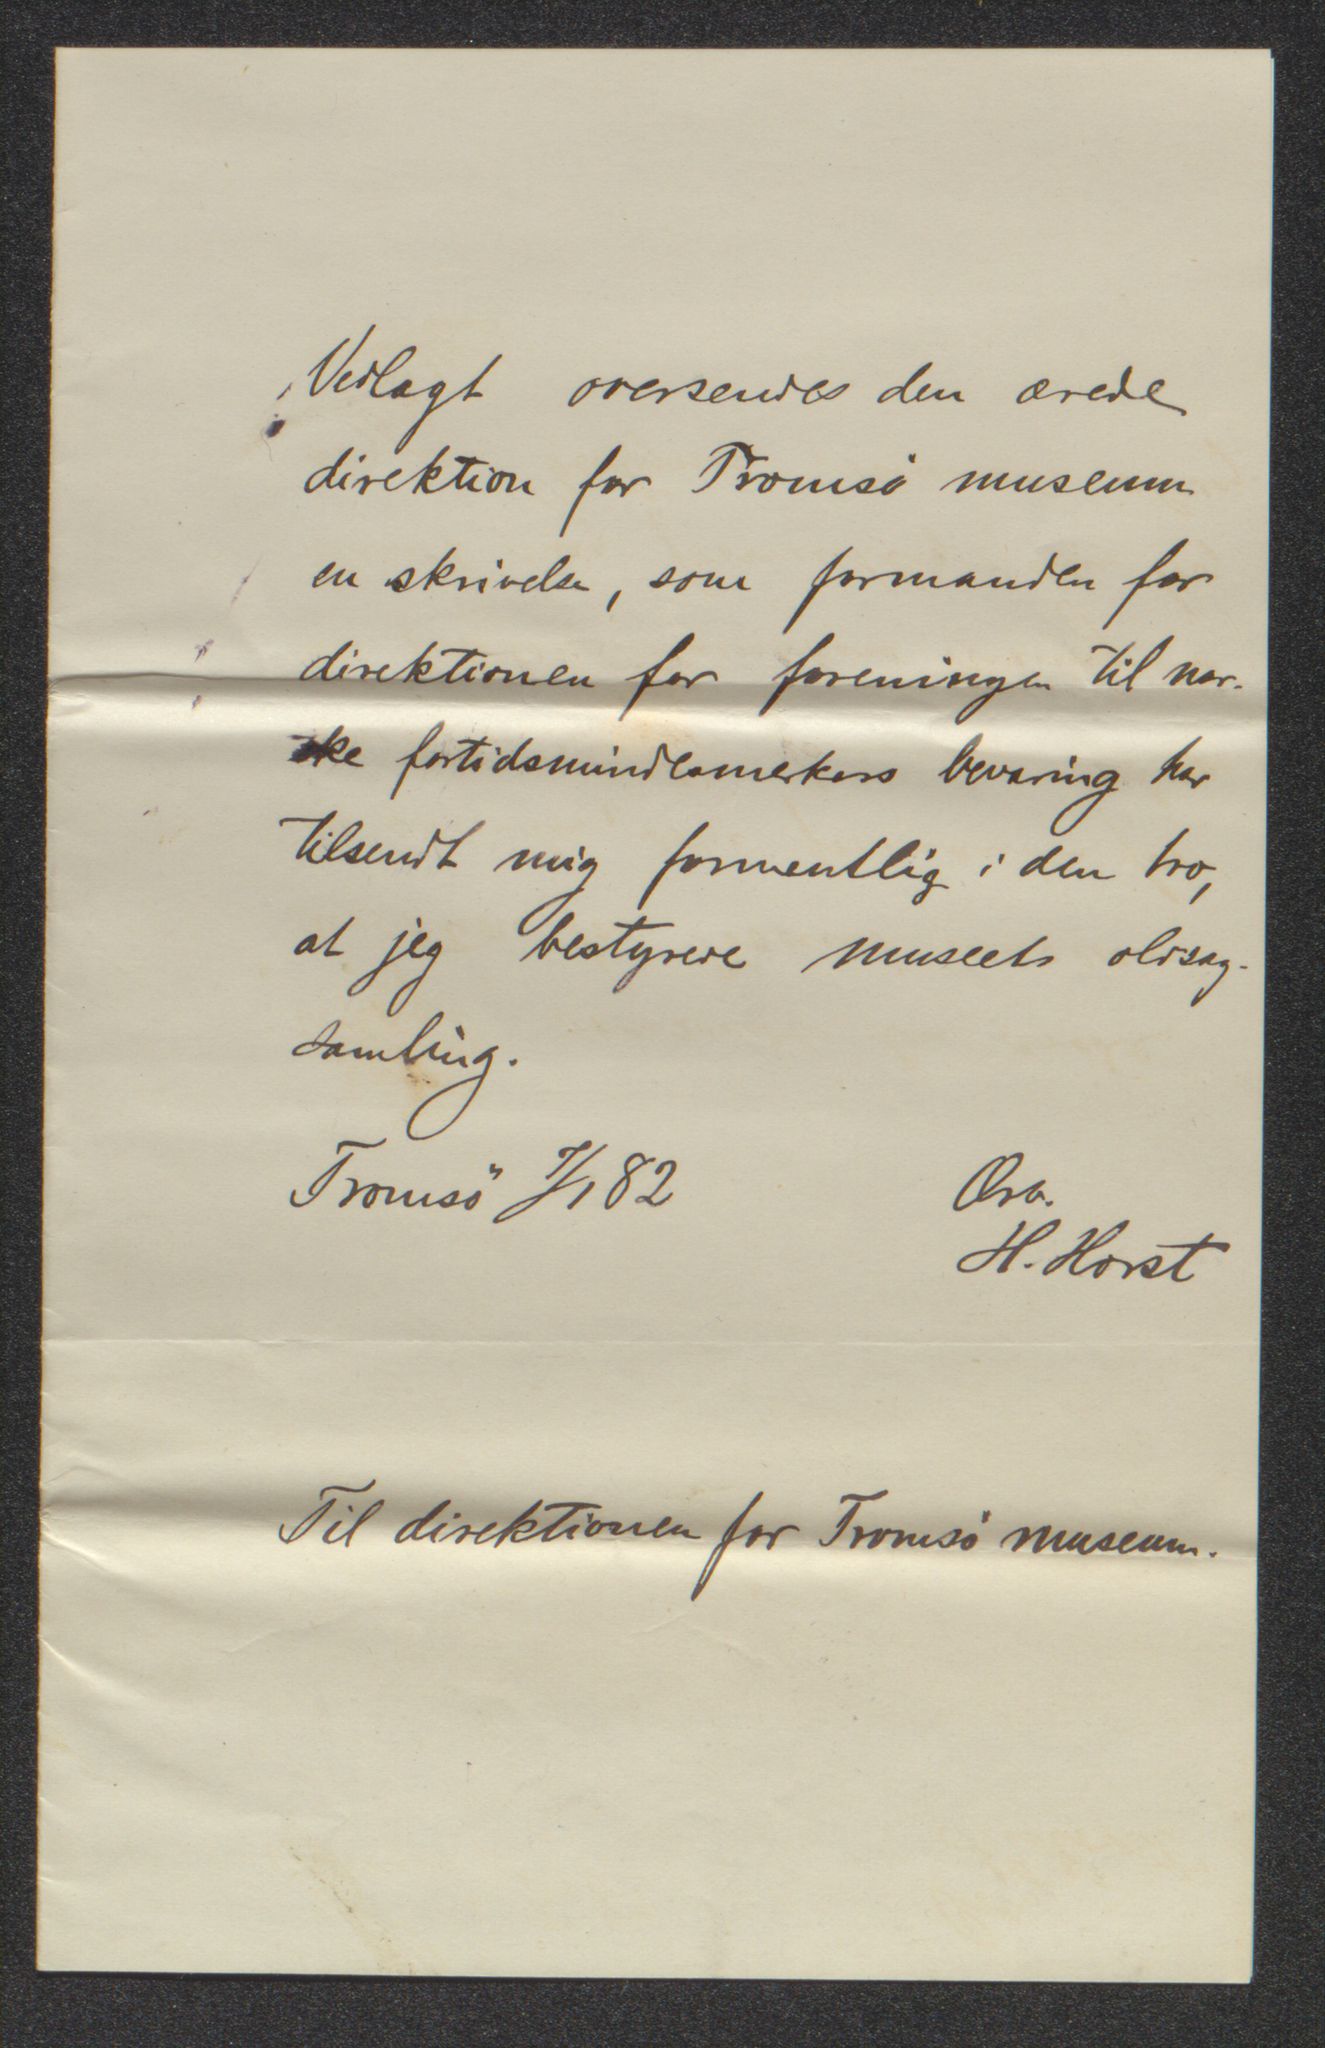 Vedlagt oversendes den ærede
direktion for Tromsö museum
en skrivelse, som formanden for
direktionen for foreningen til nor-
ske fortidsmindesmerkers bevaring har
tilsendt mig formentlig i den tro,
at jeg bestyrede museets oldsag-
samling.
Tromsö 7/1 82
Ærb.
H. Horst
Til direktionen for Tromsö museum.